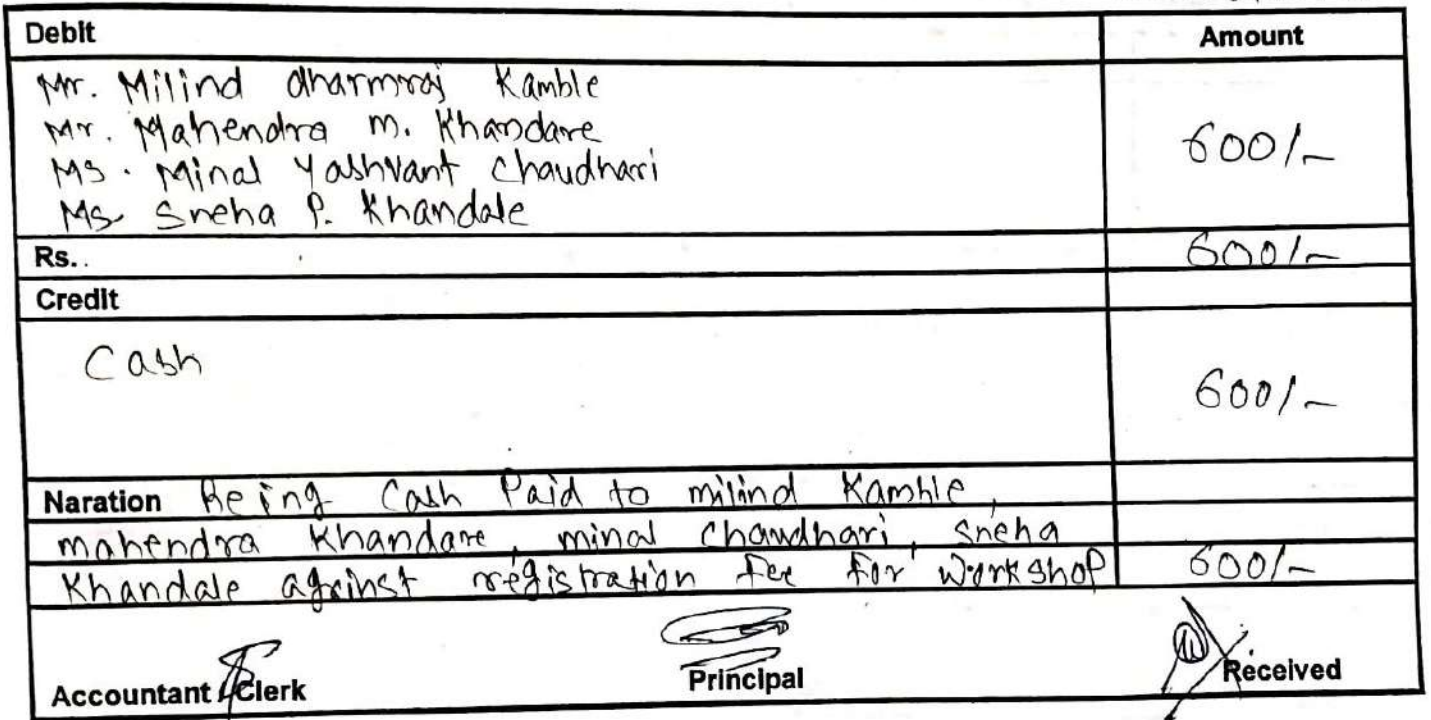 Debit Amount
Mr. Milind dharmraj Kamble
Mr. Mahendra M. Khandare
Ms. Minal Yashvant Chaudhari
600/-
Ms. Sneha P. Khandale
Rs.. 600/-
Credit
Cash
600/-
Naration Being Cash Paid to milind Kamble,
mahendra Khandare, minal Chaudhari, Sneha
Khandale against registration fee for workshop 600/-
Accountant / Clerk Principal Received